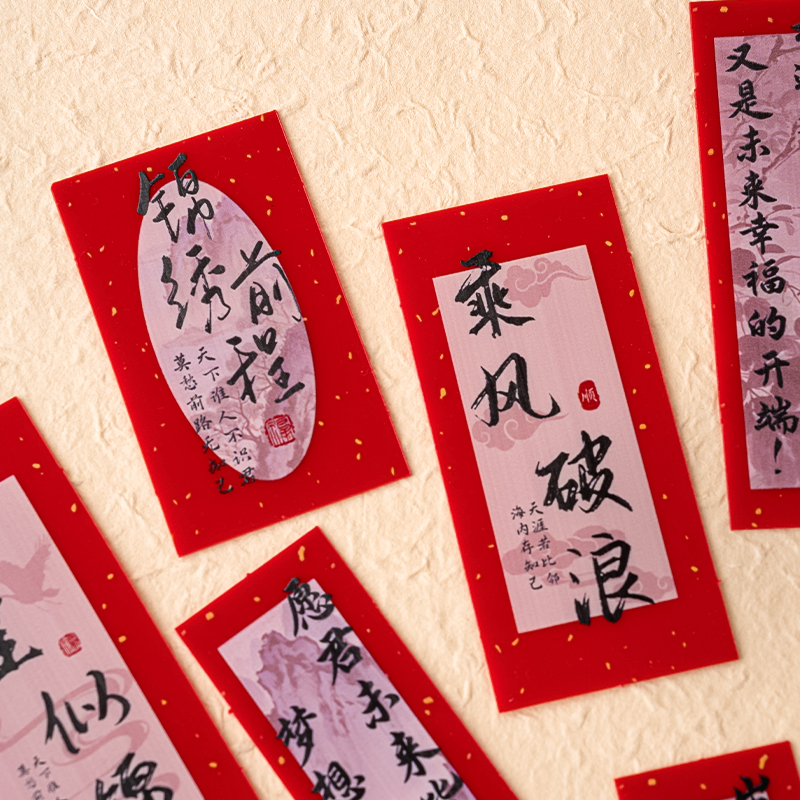 锦绣
前程
莫愁前路无知己
天下谁人不识君
乘风
破浪
顺
海内存知己
天涯若比邻
又是未来幸福的开端！
愿君未来
梦想
似锦
天下谁
莫愁前